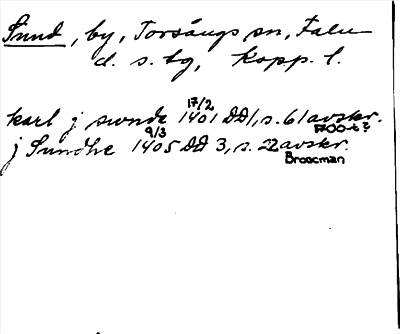 Sund, by, Torsångs sn, Falu
d. s. bg, Kopp. l.
karl j swnde 17/2 1401 DD1, s. 61 avskr. 1700-t?
j Sundhe 9/3 1405 DD 3, s. 22 avskr.
Broocman